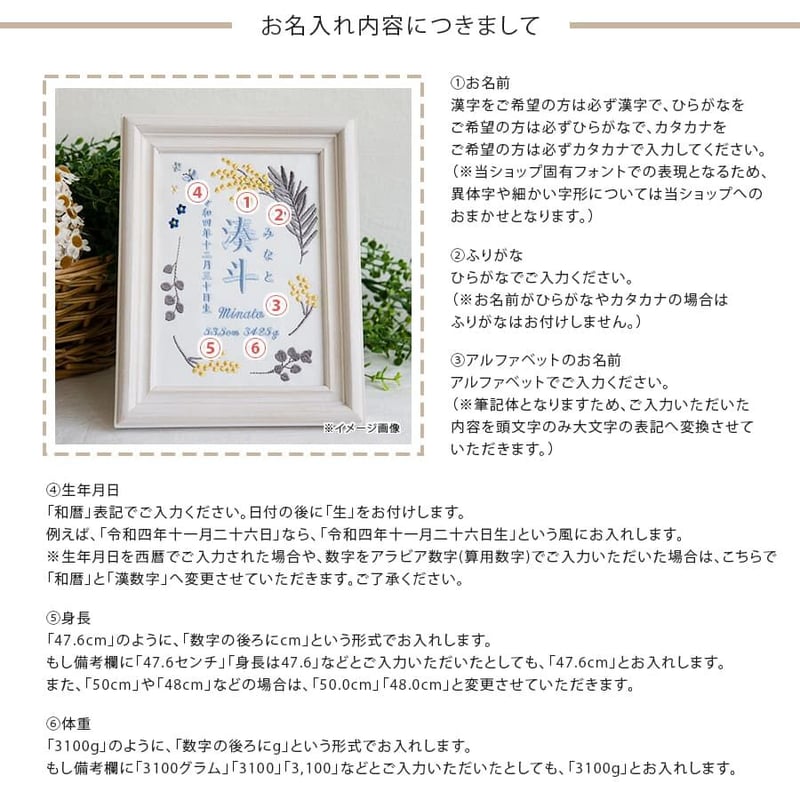 お名入れ内容につきまして
④
①
②
③
⑤
⑥
みなと
湊斗
令和四年十二月三十日生
Minato
53.5cm 3425g
※イメージ画像
①お名前
漢字をご希望の方は必ず漢字で、ひらがなを
ご希望の方は必ずひらがなで、カタカナを
ご希望の方は必ずカタカナで入力してください。
(※当ショップ固有フォントでの表現となるため、
異体字や細かい字形については当ショップへの
おまかせとなります。)
②ふりがな
ひらがなでご入力ください。
(※お名前がひらがなやカタカナの場合は
ふりがなはお付けしません。)
③アルファベットのお名前
アルファベットでご入力ください。
(※筆記体となりますため、ご入力いただいた
内容を頭文字のみ大文字の表記へ変換させて
いただきます。)
④生年月日
「和暦」表記でご入力ください。日付の後に「生」をお付けします。
例えば、「令和四年十一月二十六日」なら、「令和四年十一月二十六日生」という風にお入れします。
※生年月日を西暦でご入力された場合や、数字をアラビア数字(算用数字)でご入力いただいた場合は、こちらで
「和暦」と「漢数字」へ変更させていただきます。ご了承ください。
⑤身長
「47.6cm」のように、「数字の後ろにcm」という形式でお入れします。
もし備考欄に「47.6センチ」「身長は47.6」などとご入力いただいたとしても、「47.6cm」とお入れします。
また、「50cm」や「48cm」などの場合は、「50.0cm」「48.0cm」と変更させていただきます。
⑥体重
「3100g」のように、「数字の後ろにg」という形式でお入れします。
もし備考欄に「3100グラム」「3100」「3,100」などとご入力いただいたとしても、「3100g」とお入れします。